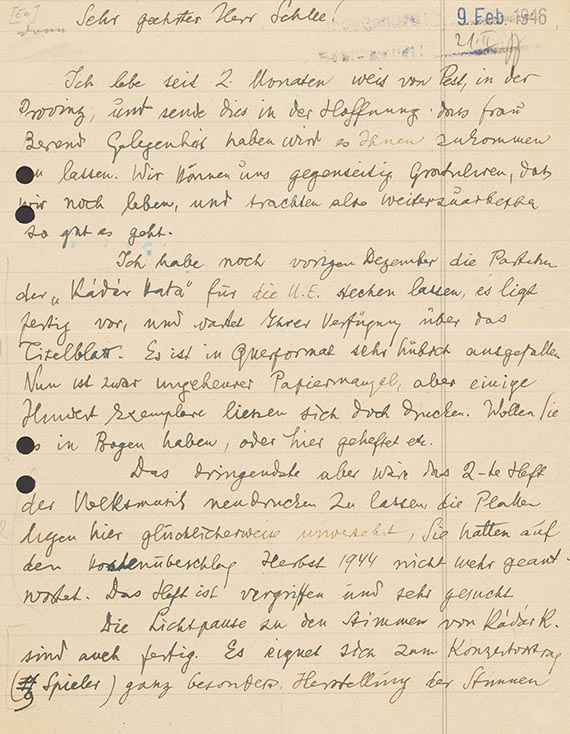 Sehr geehrter Herr Schlee!
9 Feb. 1946
21. II.
Ich lebe seit 2 Monaten weit von Pest, in der
Provinz, und sende dies in der Hoffnung dass Frau
Berend Gelegenheit haben wird es Ihnen zukommen
zu lassen. Wir können uns gegenseitig Gratulieren, dass
wir noch leben, und trachten also weiterzuarbeiten
so gut es geht.
Ich habe noch vorigen Dezember die Partitur
der „Kádár Kata" für die U.E. stechen lassen, es liegt
fertig vor, und wartet Ihrer Verfügung über das
Titelblatt. Es ist in Querformat sehr hübsch ausgefallen
Nun ist zwar ungeheurer Papiermangel, aber einige
Hundert Exemplare liessen sich doch drucken. Wollen Sie
es in Bogen haben, oder hier geheftet etc.
Das dringendste aber wäre das 2-te Heft
der Volksmusik neudrucken zu lassen, die Platten
liegen hier glücklicherweise unversehrt, Sie hatten auf
den Kostenüberschlag Herbst 1944 nicht mehr geant-
wortet. Das Heft ist vergriffen und sehr gesucht
Die Lichtpause zu den Stimmen von Kádár K.
sind auch fertig. Es eignet sich zum Konzertvortrag
(9 Spieler) ganz besonders. Herstellung der Stimmen